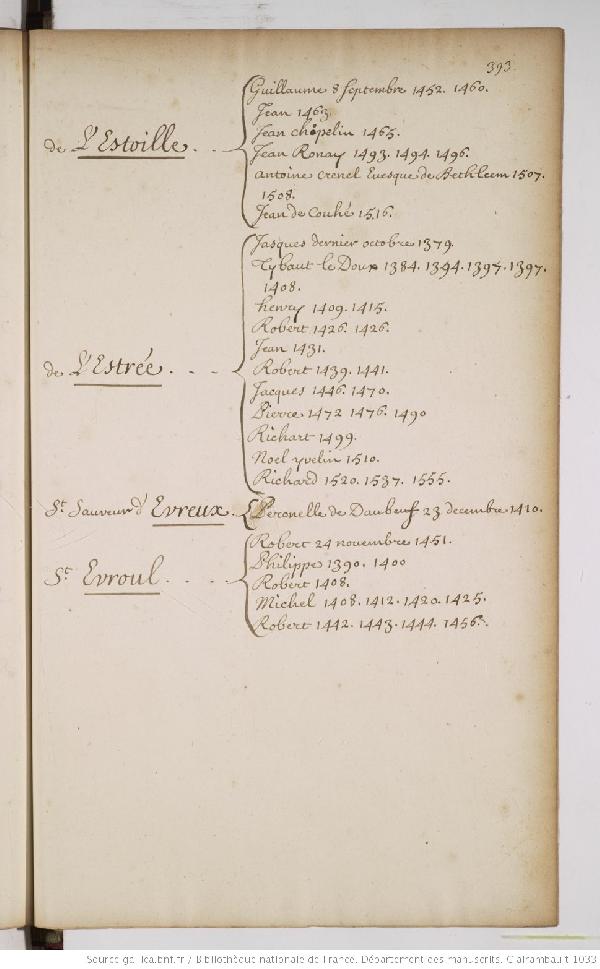 393.
de L'Estoille
Guillaume 8 Septembre 1452. 1460.
Jean 1463.
Jean chapelin 1465.
Jean Ronay 1493. 1494. 1496.
Antoine crenel Evesque de Bethleem 1507.
1508.
Jean de Couhé 1516.
de L'Estrée
Jasques dernier octobre 1379.
Tybaut le Doux 1384. 1394. 1397. 1397.
1408.
henry 1409. 1415.
Robert 1426. 1426.
Jean 1431.
Robert 1439. 1441.
Jacques 1446. 1470.
Pierre 1472 1476. 1490
Richart 1499.
Noel yvelin 1510.
Richard 1520. 1537. 1555.
St. Sauveur d'Evreux.
Peronelle de Daubeuf 23 decembre 1410.
St. Evroul
Robert 24 novembre 1451.
Philippe 1390. 1400
Robert 1408.
Michel 1408. 1412. 1420. 1425.
Robert 1442. 1443. 1444. 1456.
Source gallica.bnf.fr / Bibliothèque nationale de France. Département des manuscrits. Clairambault 1033